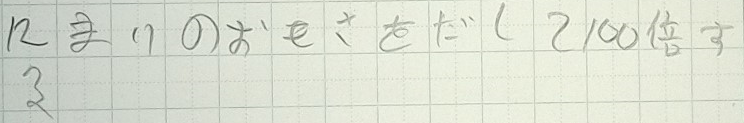 おまりのおもさをだして100倍す
る